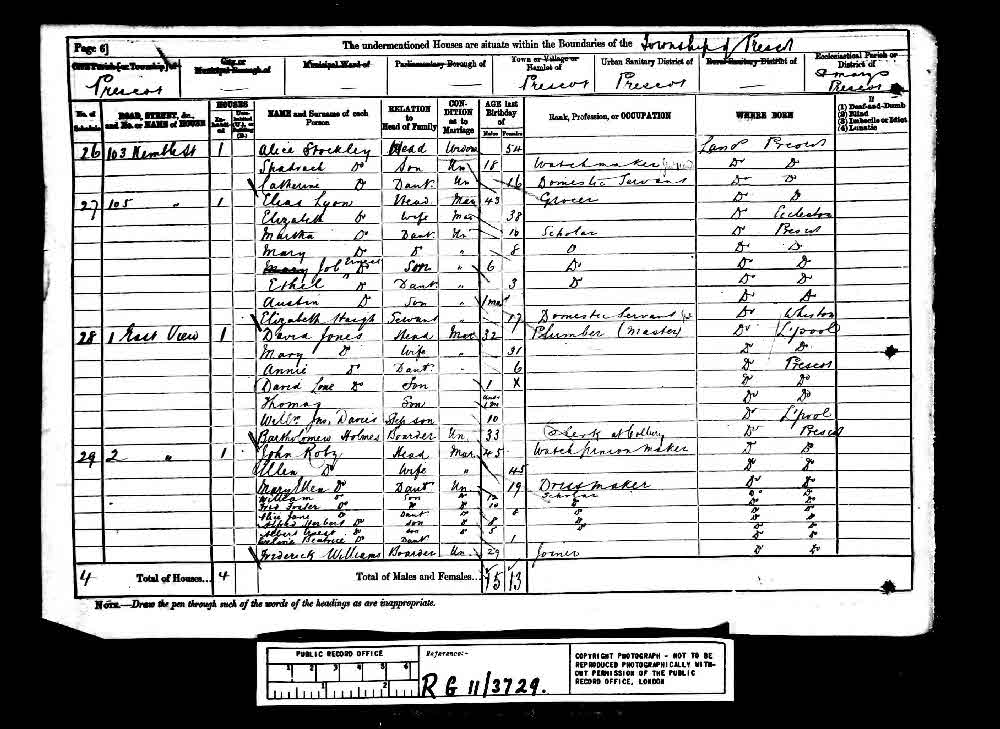 Page 6]
The undermentioned Houses are situate within the Boundaries of the Township of Prescot
Civil Parish [or Township] of
City or Municipal Borough of
Municipal Ward of
Parliamentary Borough of
Town or Village or Hamlet of
Urban Sanitary District of
Rural Sanitary District of
Ecclesiastical Parish or District of
Prescot — — — Prescot Prescot — St Marys Prescot
No. of Schedule
ROAD, STREET, &c., and No. or NAME of HOUSE
HOUSES
In-habited
Unin-habited (U.), or Building (B.)
NAME and Surname of each Person
RELATION to Head of Family
CON-DITION as to Marriage
AGE last Birthday of
Males Females
Rank, Profession, or OCCUPATION
WHERE BORN
If
(1) Deaf-and-Dumb
(2) Blind
(3) Imbecile or Idiot
(4) Lunatic
26 103 Kemble St 1 Alice Stockley Head Widow 54 Lanc Prescot
Shadrach Do Son Un 18 Watchmaker Do Do
Catherine Do Daut. Un 16 Domestic Servant Do Do
27 105 " 1 Elias Lyon Head Mar 43 Grocer Do Do
Elizabeth Do Wife Mar 38 Do Eccleston
Martha Do Daut. Un 10 Scholar Do Prescot
Mary Do D " 8 D Do Do
Mary Job Ernest Do Son " 6 Do Do Do
Ethel " Do Daut. " 3 D Do Do
Austin D Son " 1 mo Do Do
Elizabeth Haigh Servant " 17 Domestic Servant Do Whiston
28 1 East View 1 David Jones Head Mar 32 Plumber (Master) Do L'pool
Mary D Wife " 31 D Do
Annie Do Daut. " 6 Do Prescot
David Lowe Do Son 1 X Do Do
Thomas Son Do Do
Willm Jno. Davies Step son 10 Do L'pool
Bartholomew Holmes Boarder Un 33 Clerk at Colliery Do Prescot
29 2 " 1 John Roby Head Mar 45 Watch pinion maker D D
Ellen Do Wife " 45 Do Do
Mary Ellen Do Daut Un 19 Dressmaker Do Do
William Do Son 12 Scholar Do Do
Fred Foster Do 10 Do Do
Alice Jane Do Daut Do Do
Alfred Herbert Do Son 8 Do Do
Albert Do Son 5 Do Do
Beatrice Do Daut 1 Do Do
Frederick Williams Boarder Un 29 Joiner Do Do
4 Total of Houses... 4 Total of Males and Females... 15 13
NOTE.—Draw the pen through such of the words of the headings as are inappropriate.
PUBLIC RECORD OFFICE
1 2 3 4 5 6
1 2
Reference:-
RG 11/3729.
COPYRIGHT PHOTOGRAPH - NOT TO BE
REPRODUCED PHOTOGRAPHICALLY WITH-
OUT PERMISSION OF THE PUBLIC
RECORD OFFICE, LONDON